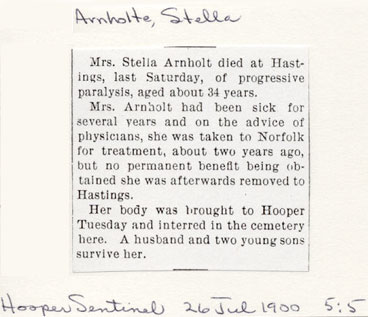 Arnholte, Stella
Mrs. Stella Arnholt died at Hast-
ings, last Saturday, of progressive
paralysis, aged about 34 years.
Mrs. Arnholt had been sick for
several years and on the advice of
physicians, she was taken to Norfolk
for treatment, about two years ago,
but no permanent benefit being ob-
tained she was afterwards removed to
Hastings.
Her body was brought to Hooper
Tuesday and interred in the cemetery
here. A husband and two young sons
survive her.
Hooper Sentinel 26 Jul 1900 5:5